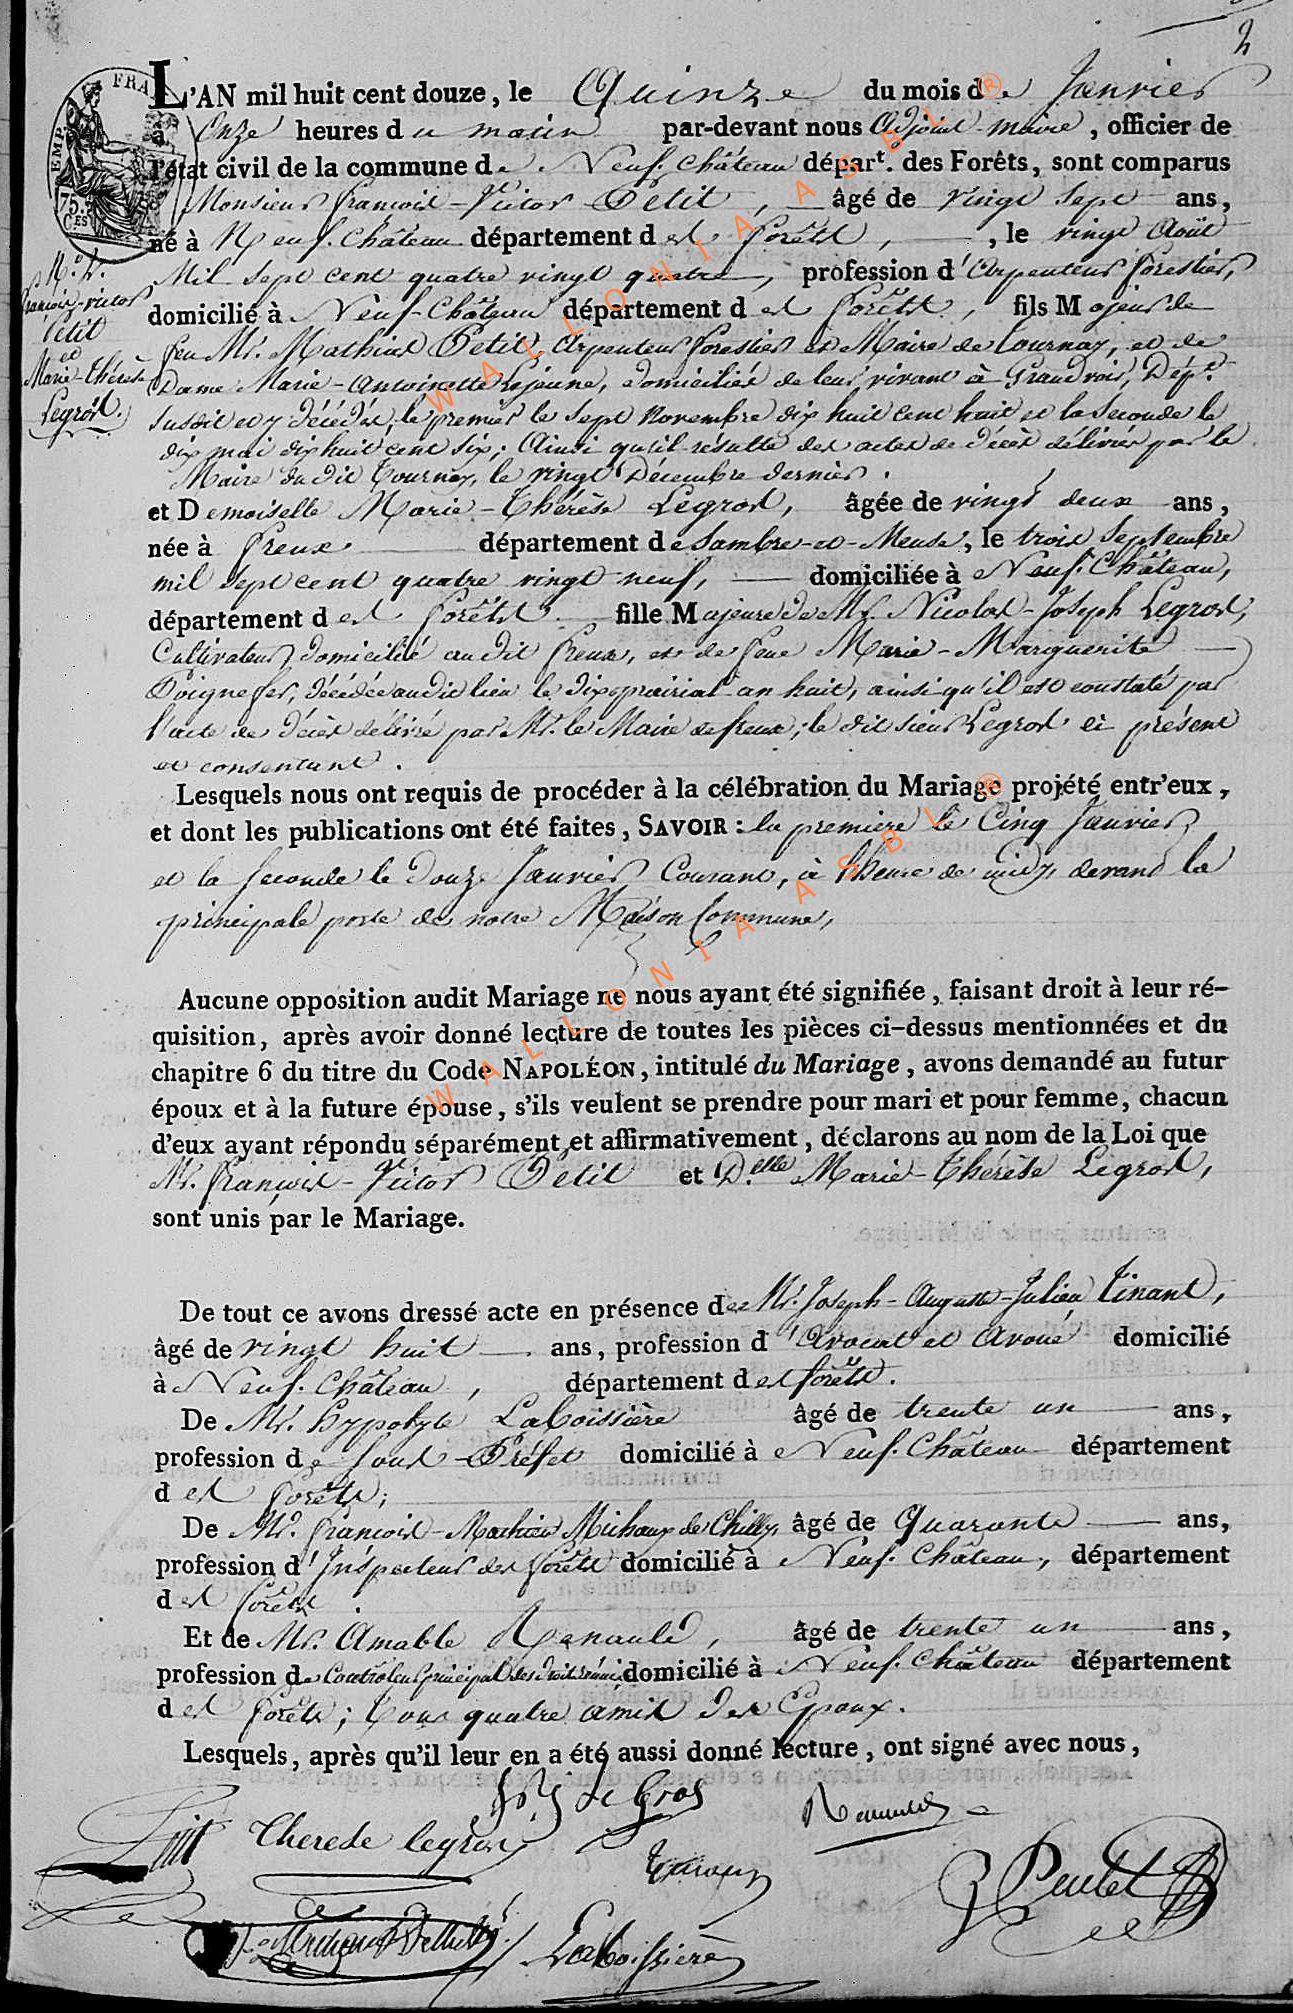 2
L'AN mil huit cent douze, le Quinze du mois de Janvier
Onze heures du matin par-devant nous Adjoint-maire, officier de
l'état civil de la commune de Neuf-Château départ. des Forêts, sont comparus
Monsieur François-Victor Petit, âgé de vingt sept ans,
né à Neuf-Château département des Forêts, le vingt Août
Mil sept cent quatre vingt quatre, profession d'Arpenteur forestier,
domicilié à Neuf-Château département des Forêts, fils Majeur de
feu Mr. Mathias Petit, Arpenteur forestier et Maire de Tournay, et de
Dame Marie-Antoinette Lejeune, domiciliés de leur vivant à Grandvoir, Dépt.
susdit et y décédés, le premier le sept Novembre dix huit cent huit et la seconde le
dix mai dix huit cent six; Ainsi qu'il résulte des actes de décès délivrés par le
Maire du dit Tournay, le vingt Décembre dernier.
et Demoiselle Marie-Thérèse Legros, âgée de vingt deux ans,
née à freux département de Sambre-et-Meuse, le trois Septembre
mil sept cent quatre vingt neuf, domiciliée à Neuf-Château,
département des Forêts fille Majeure de Mr. Nicolas-Joseph Legros,
Cultivateur domicilié au dit freux, et de feue Marie-Marguerite
Poignefer, décédée audit lieu le dix prairial an huit, ainsi qu'il est constaté par
l'acte de décès délivré par Mr. le Maire de freux; le dit sieur Legros ici présent
et consentant.
Lesquels nous ont requis de procéder à la célébration du Mariage projété entr'eux,
et dont les publications ont été faites, SAVOIR: la première le Cinq Janvier
et la seconde le douze Janvier Courant, à l'heure de midy, devant la
principale porte de notre Maison Commune,
Aucune opposition audit Mariage ne nous ayant été signifiée, faisant droit à leur ré-
quisition, après avoir donné lecture de toutes les pièces ci-dessus mentionnées et du
chapitre 6 du titre du Code NAPOLÉON, intitulé du Mariage, avons demandé au futur
époux et à la future épouse, s'ils veulent se prendre pour mari et pour femme, chacun
d'eux ayant répondu séparément et affirmativement, déclarons au nom de la Loi que
Mr. François-Victor Petit et Delle Marie-Thérèse Legros,
sont unis par le Mariage.
De tout ce avons dressé acte en présence de Mr. Joseph-Auguste-Julien Tinant,
âgé de vingt huit ans, profession d'Avocat et Avoué domicilié
à Neuf-Château, département des forêts.
De Mr. Hyppolyte LaBoissière âgé de trente un ans,
profession de Sous-Préfet domicilié à Neuf-Château département
des Forêts;
De Mr. François-Mathieu Michaux de Chilly, âgé de Quarante ans,
profession d'Inspecteur des forêts domicilié à Neuf-Château, département
des forêts
Et de Mr. Amable Renauld, âgé de trente un ans,
profession de Contrôleur principal des droits réunis domicilié à Neuf-Château département
des Forêts; tous quatre amis des Epoux.
Lesquels, après qu'il leur en a été aussi donné lecture, ont signé avec nous,
N. J. Le Gros
Renauld
Petit Therese legros
LaBoissière
FRA
EMP.
75.
CES
N.° 2.
François-victor
Petit
et
Marie-thérèse
Legros.
WALLONIA ASBL ®
WALLONIA ASBL ®